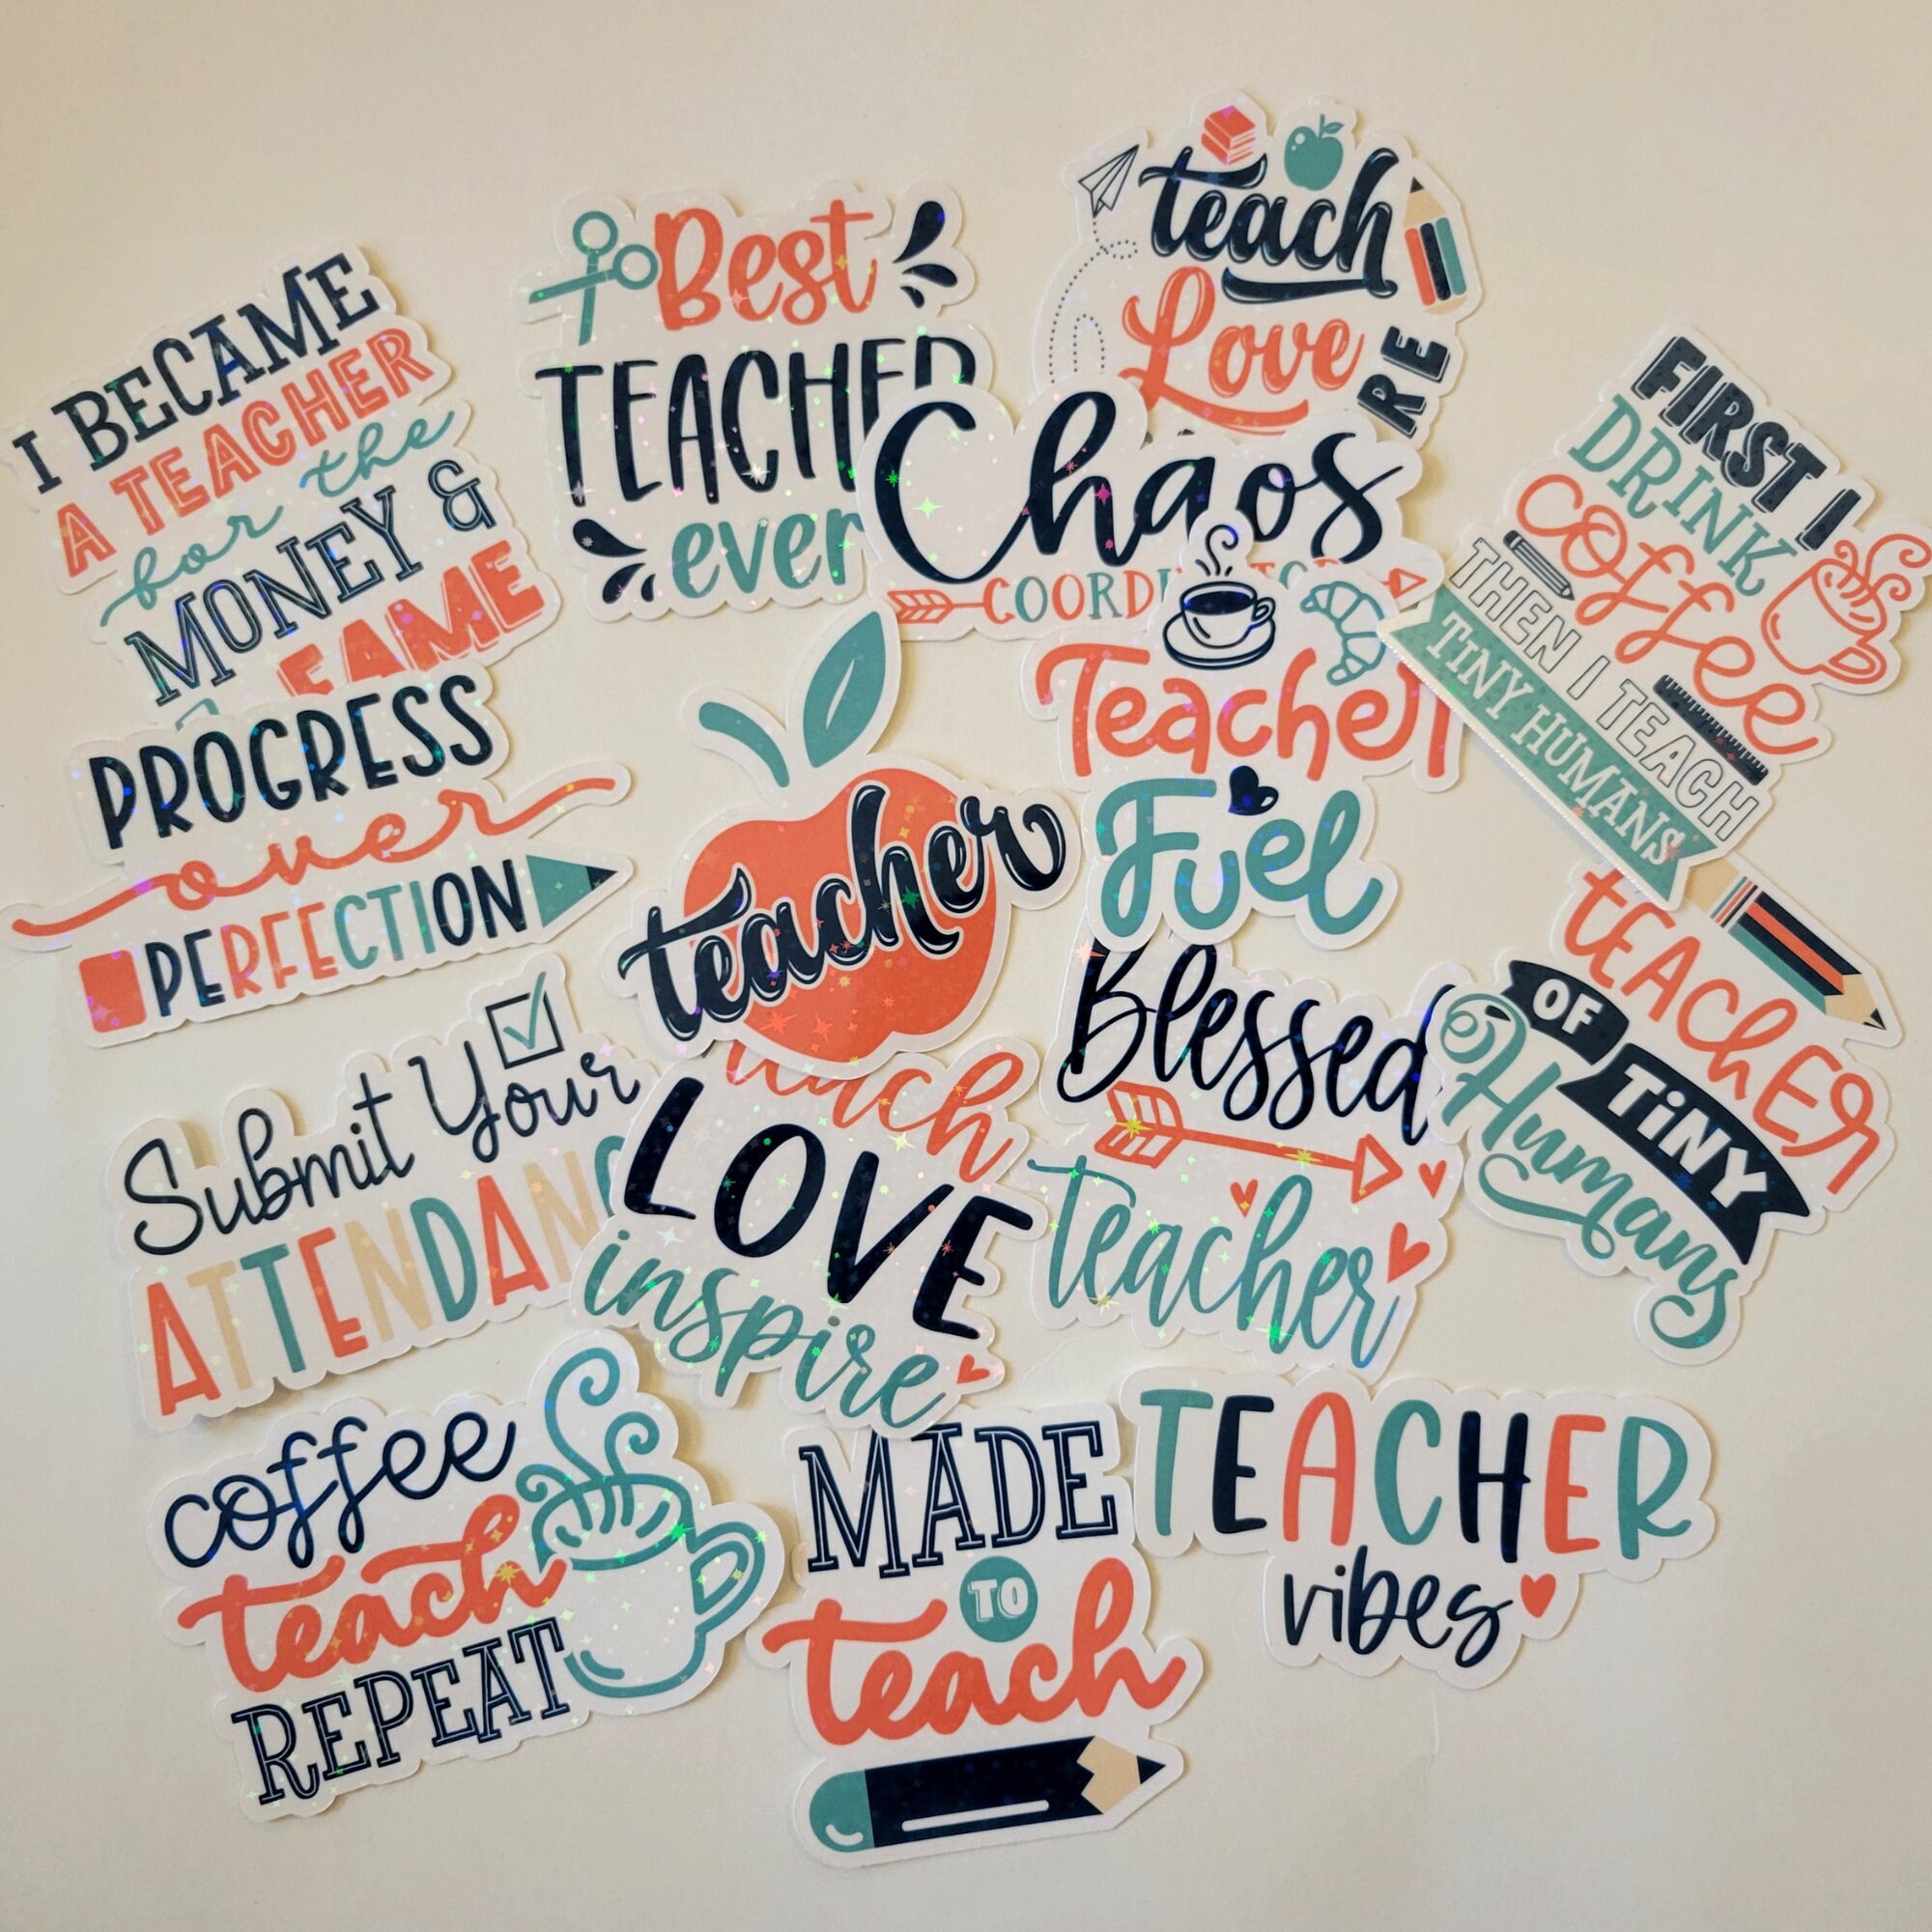 I BECAME
A TEACHER
for the
MONEY &
FAME
Best
TEACHER
ever
teach
Love
RE
Chaos
COORDI
FIRST I
DRINK
coffee
THEN I TEACH
TINY HUMANS
PROGRESS
over
PERFECTION
teacher
Teacher
Fuel
teacher
OF TiNY
Humans
Submit Your
ATTENDAN
teach
LOVE
inspire
Blessed
teacher
coffee
teach
REPEAT
MADE
TO
teach
TEACHER
vibes